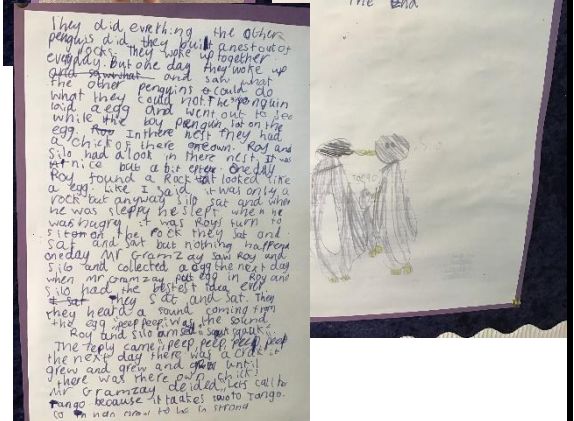 They did evrething the other
penguis did they built a nest out of
rocks. They woke up together
everyday. But one day they woke up
and saw what
the other penguins could do
what they could not. The penguin
laid a egg and went out to
while the boy penguin sat on the
egg. In there nest they had
a chick of there one own. Roy and
Silo had a look in there nest. It was
nice but a bit one day
Roy found a Rock tat looked like
a egg. Like I said, it was only a
rock but anyway Silo sat and when
he was sleppy he slept when he
was it was Roys turn to
sit on the rock they sat and
sat and sat but nothing
oneday Mr Gramzay saw Roy and
Silo and collected a egg the next day
when Mr Gramzay put egg in Roy and
Silo had the bestest idea ever.
They sat and sat. Then
they heard a sound coming from
the egg peep peep was the sound
Roy and Silo
The reply came peep, peep, peep, peep
the next day there was a crak it
grew and grew and grew until
there was there own chick
Mr Gramzay deided, Lets call to
Tango because it taakes two to Tango.
to be in strong
The End
Silo
Tango